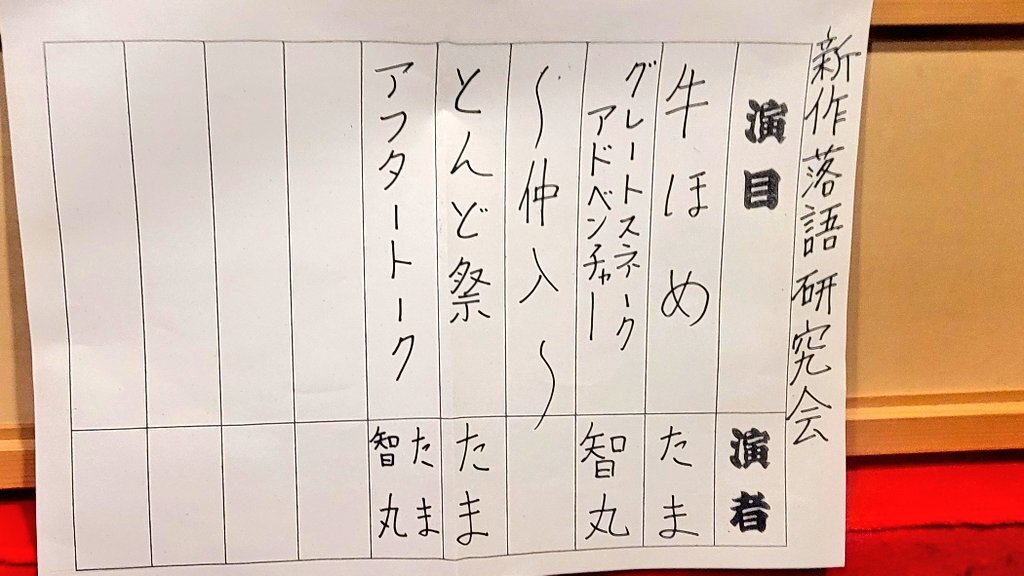 新作落語研究会
演目
演者
牛ほめ
たま
グレートスネーク
アドベンチャー
智丸
〜仲入〜
とんど祭
たま
アフタートーク
たま
智丸